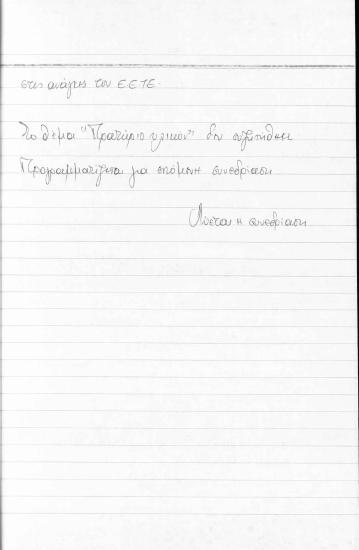 στις ανάγκες του Ε.Ε.Τ.Ε.
Το θέμα "Πρατήριο υλικού" δεν συζητήθηκε
Προγραμματίζεται για επόμενη συνεδρίαση
Λύεται η συνεδρίαση